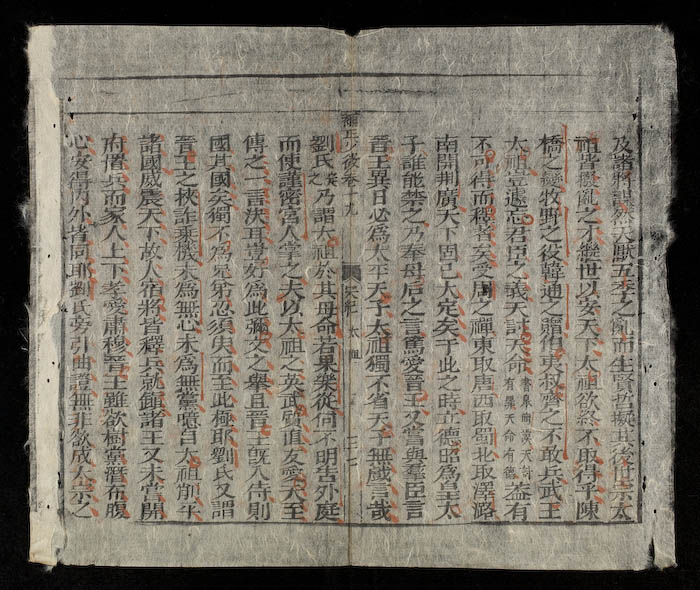 及諸將謀然天厭五季之亂而生賢哲擬其後世宗太
祖皆撥亂之才繼世以安天下太祖欲終不取得乎陳
橋之變牧野之役韓通之贈伯夷叔齊之不敢兵武王
太祖豈遽忘君臣之義天討天命書臯曲漠天討有罪天命有德盖有
不可得而穪者矣受周之禪東取唐西取蜀北取澤潞
南開荆廣天下固已大定矣于此之時立德昭爲主太
子誰能禁之乃奉母后之言篤愛晉王又嘗與羣臣言
晉王異日必爲太平天子太祖獨不省天子無戲言哉
卷十九
宋紀 太祖
劉氏之乃謂太祖於其母命若果樂從何不明告外庭
而使謹密宮人掌之夫以太祖之英武質直友愛天至
傳之一言決耳豈好爲此彌文之舉且晉王旣入侍則
國其國矣獨不爲兄弟忍須臾而至此極耶劉氏又謂
晉王之狹詐乘機未爲無心未爲無黨嘻自太祖削平
諸國威震天下故人宿將皆釋兵就館諸王又未嘗開
府僭兵而家人上下孝愛肅穆晉王雖欲樹黨潛布腹
心安得內外皆同耶劉氏旁引曲證無非欲成太宗之